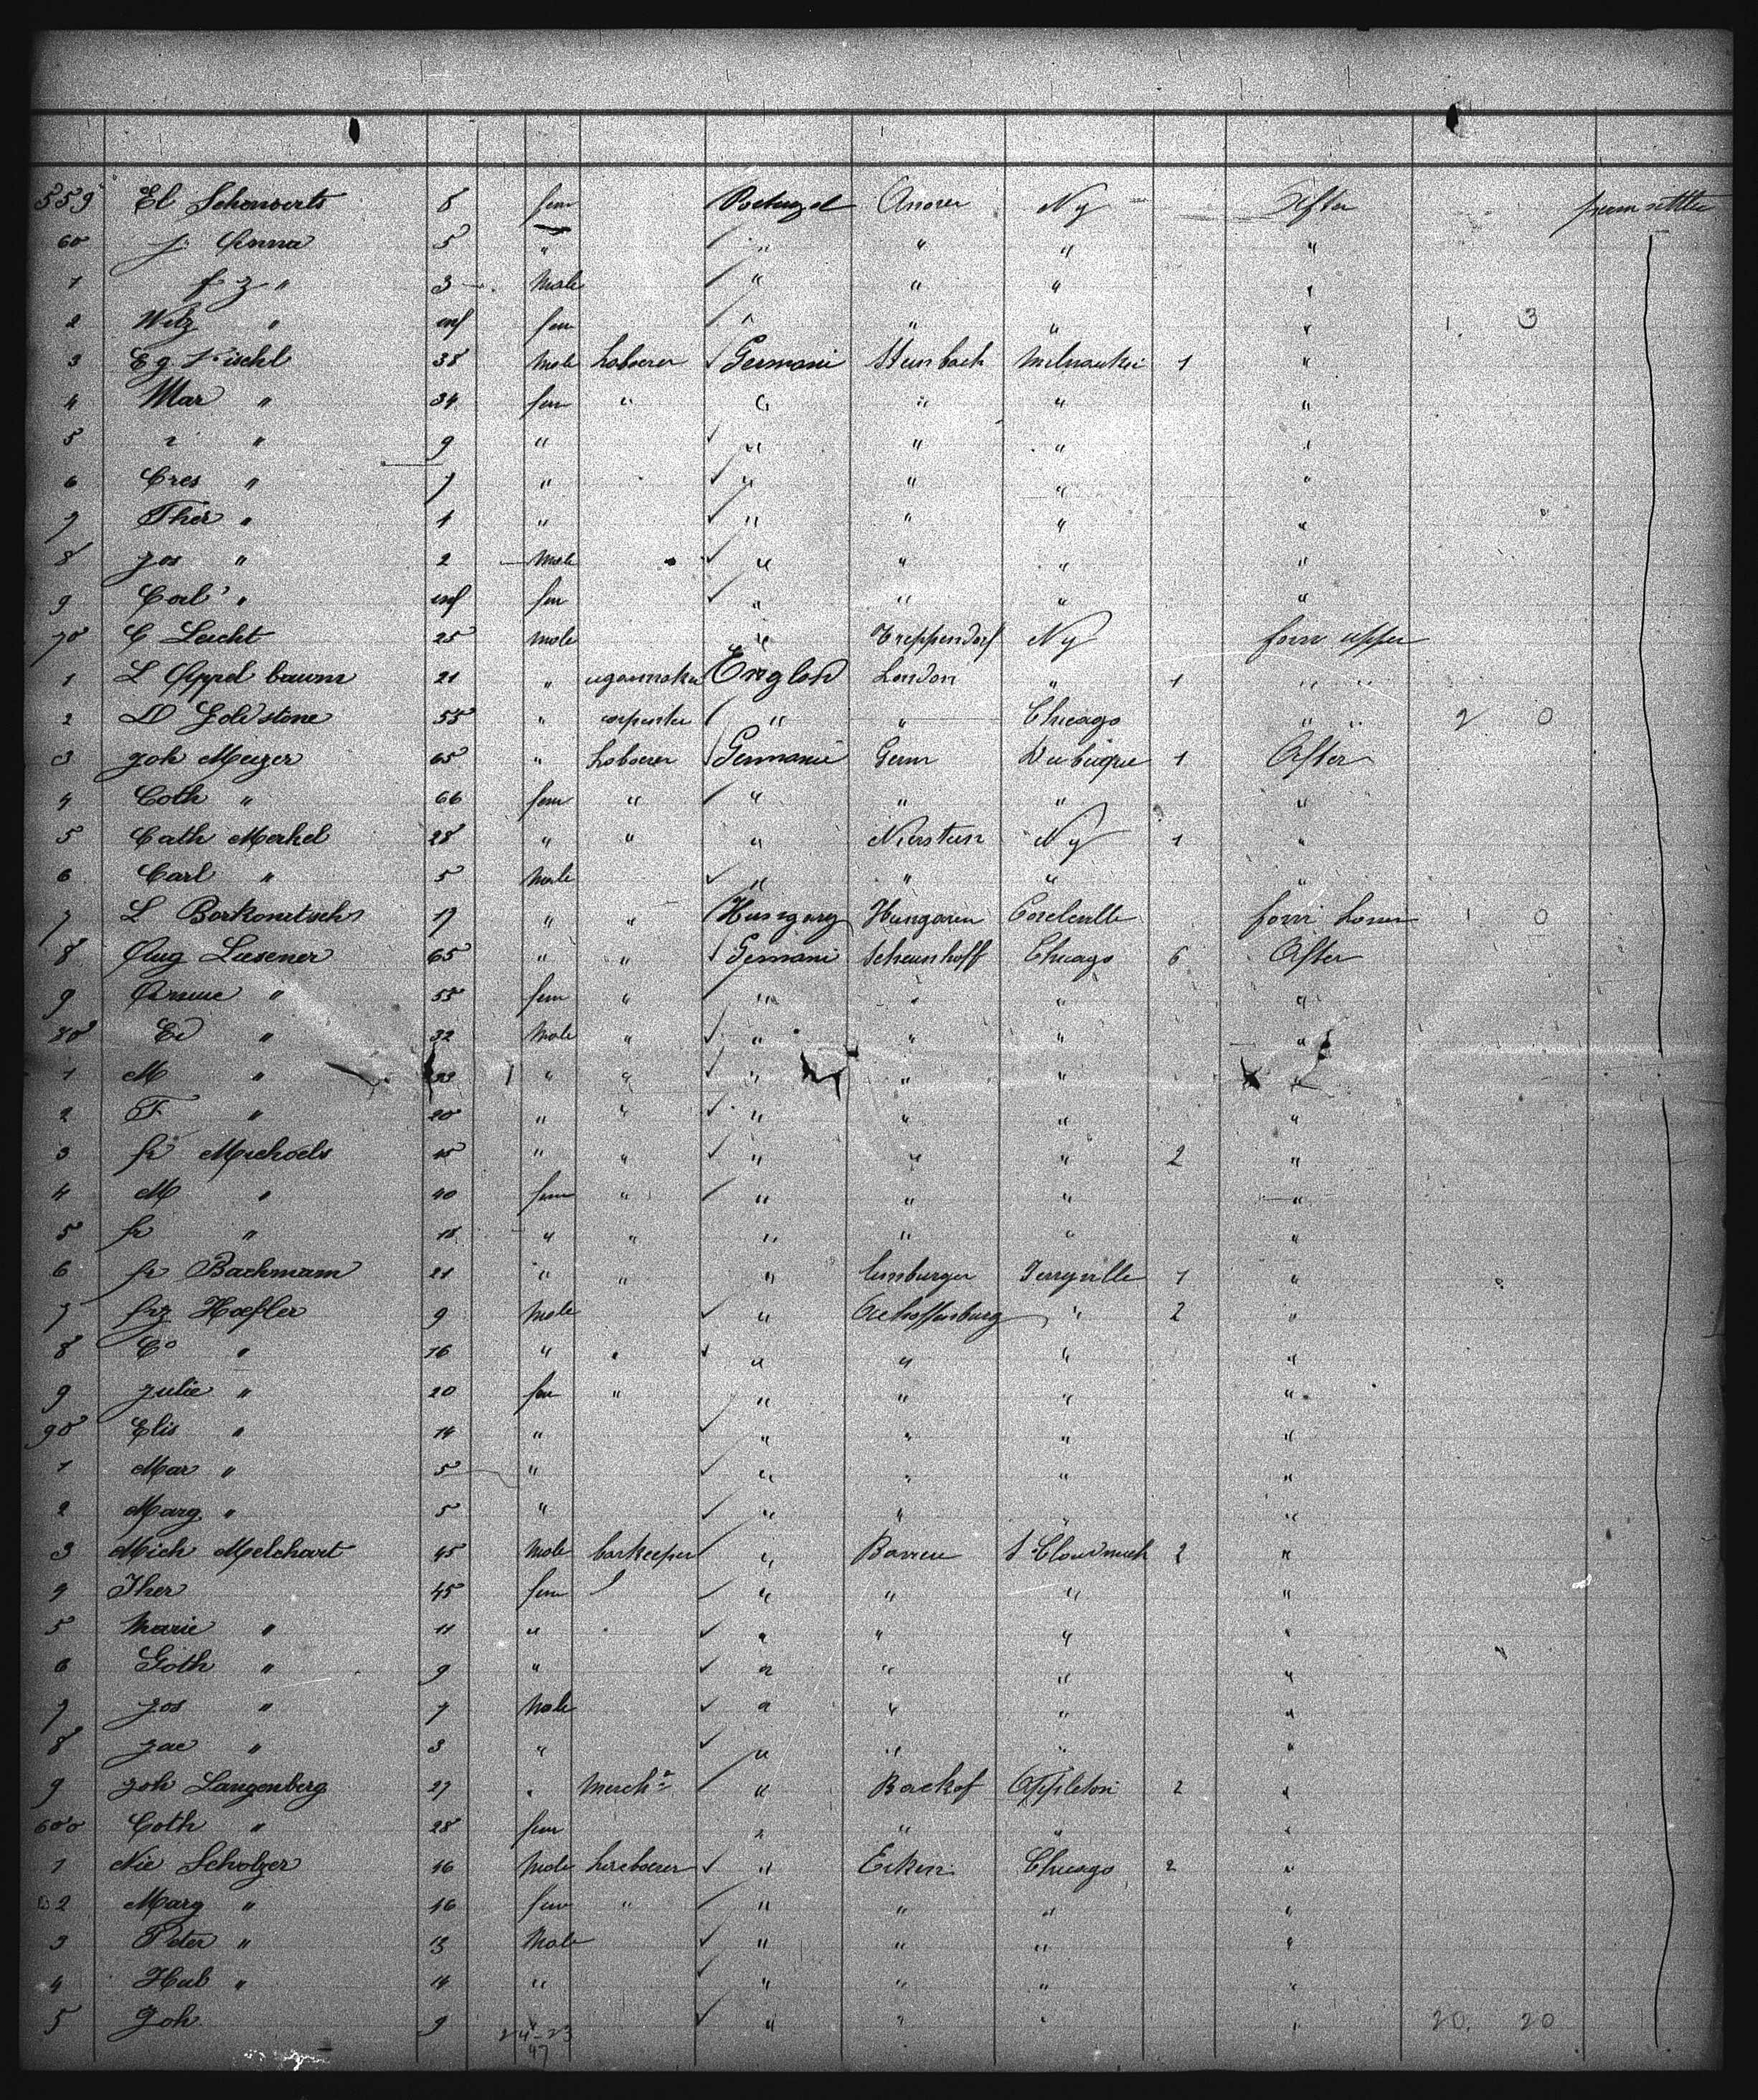 559 El Schowerts 8 fem Portugal Ny After perm settle
60 f. Anna 5 " " " " "
1 f z " 3 Male " " " "
2 Welz " inf fem " " " " 1 3
3 Eg. Fischl 38 Male Laboerer Germani Steinbach Milwaukie 1 "
4 Mar " 34 fem " " " " "
5 " " 9 " " " " "
6 Cres " 7 " " " " "
7 Ther " 4 " " " " "
8 Jos " 2 Male " " " "
9 Carl " inf fem " " " "
70 C Leicht 25 Male " Treppendorf Ny forw upper
1 L Appel baum 21 " cigarmaker England London " 1 " "
2 D Goldstone 55 " carpenter " " Chicago " " 2 0
3 Joh Meizer 65 " Laboerer Germanie Germ Dubuque 1 After
4 Cath " 66 fem " " " " "
5 Cath Merkel 28 " " " Nierstein Ny 1 "
6 Carl " 5 Male " " " "
7 L Borkonitsch 17 " " Hungary Hungarn forw 1 0
8 Aug Liesener 65 " " Germani Scheunhoff Chicago 6 After
9 " 55 fem " " " " "
80 Ed " 32 Male " " " " "
1 M " " " " " " "
2 F " 20 " " " " " "
3 fr Michaels 45 " " " " " 2 "
4 M " 40 fem " " " " "
5 fr " 18 " " " " " "
6 fr Bachmann 21 " " " Limburger Terryville 1 "
7 frz Hoefler 9 Male " Aschaffenburg " 2 "
8 Co " 16 " " " " " "
9 Julie " 20 fem " " " " "
90 Elis " 14 " " " " "
1 Mar " 5 " " " " "
2 Marg " 5 " " " " "
3 Mich Melchart 45 Male barkeeper " St Cloud 2 "
4 Ther 45 fem " " " "
5 Marie " 11 " " " " "
6 Goth " 9 " " " " "
7 Jos " 7 Male " " " "
8 Jac " 3 " " " " "
9 Joh Langenberg 27 " Merch " Backof Appleton 2 "
600 Cath " 28 fem " " " "
1 Nic Scholzer 46 Male " Eiken Chicago 2 "
2 Marg " 46 fem " " " " "
3 Peter " 13 Male " " " "
4 Hub " 14 " " " " "
5 Joh 9 " " " " " 20 20
24-23
47